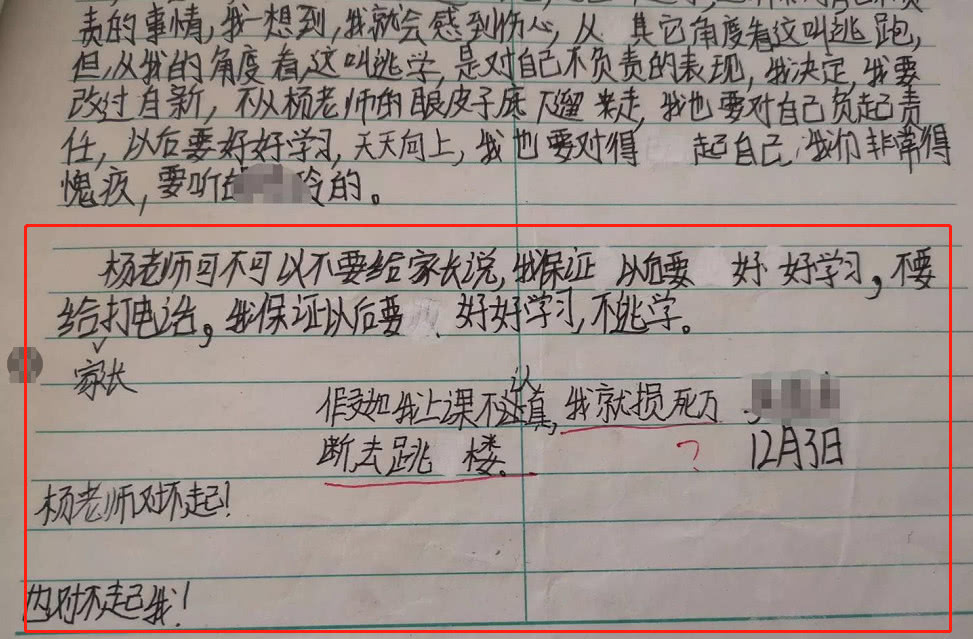 责的事情,我一想到,我就会感到伤心,从 其它角度看这叫逃跑,
但,从我的角度看,这叫逃学,是对自己不负责的表现,我决定,我要
改过自新,不从杨老师的眼皮子底下遛走,我也要对自己负起责
任,以后要好好学习,天天向上,我也要对得 起自己,我们非常得
愧疚,要听 的。
杨老师可不可以不要给家长说,我保证 以后要 好好学习,不要
给家长打电话,我保证以后要 好好学习,不逃学。
假如我上课不认真,我就损死万
断,去跳 楼。 ?
12月3日
杨老师对不起!
对不起我!